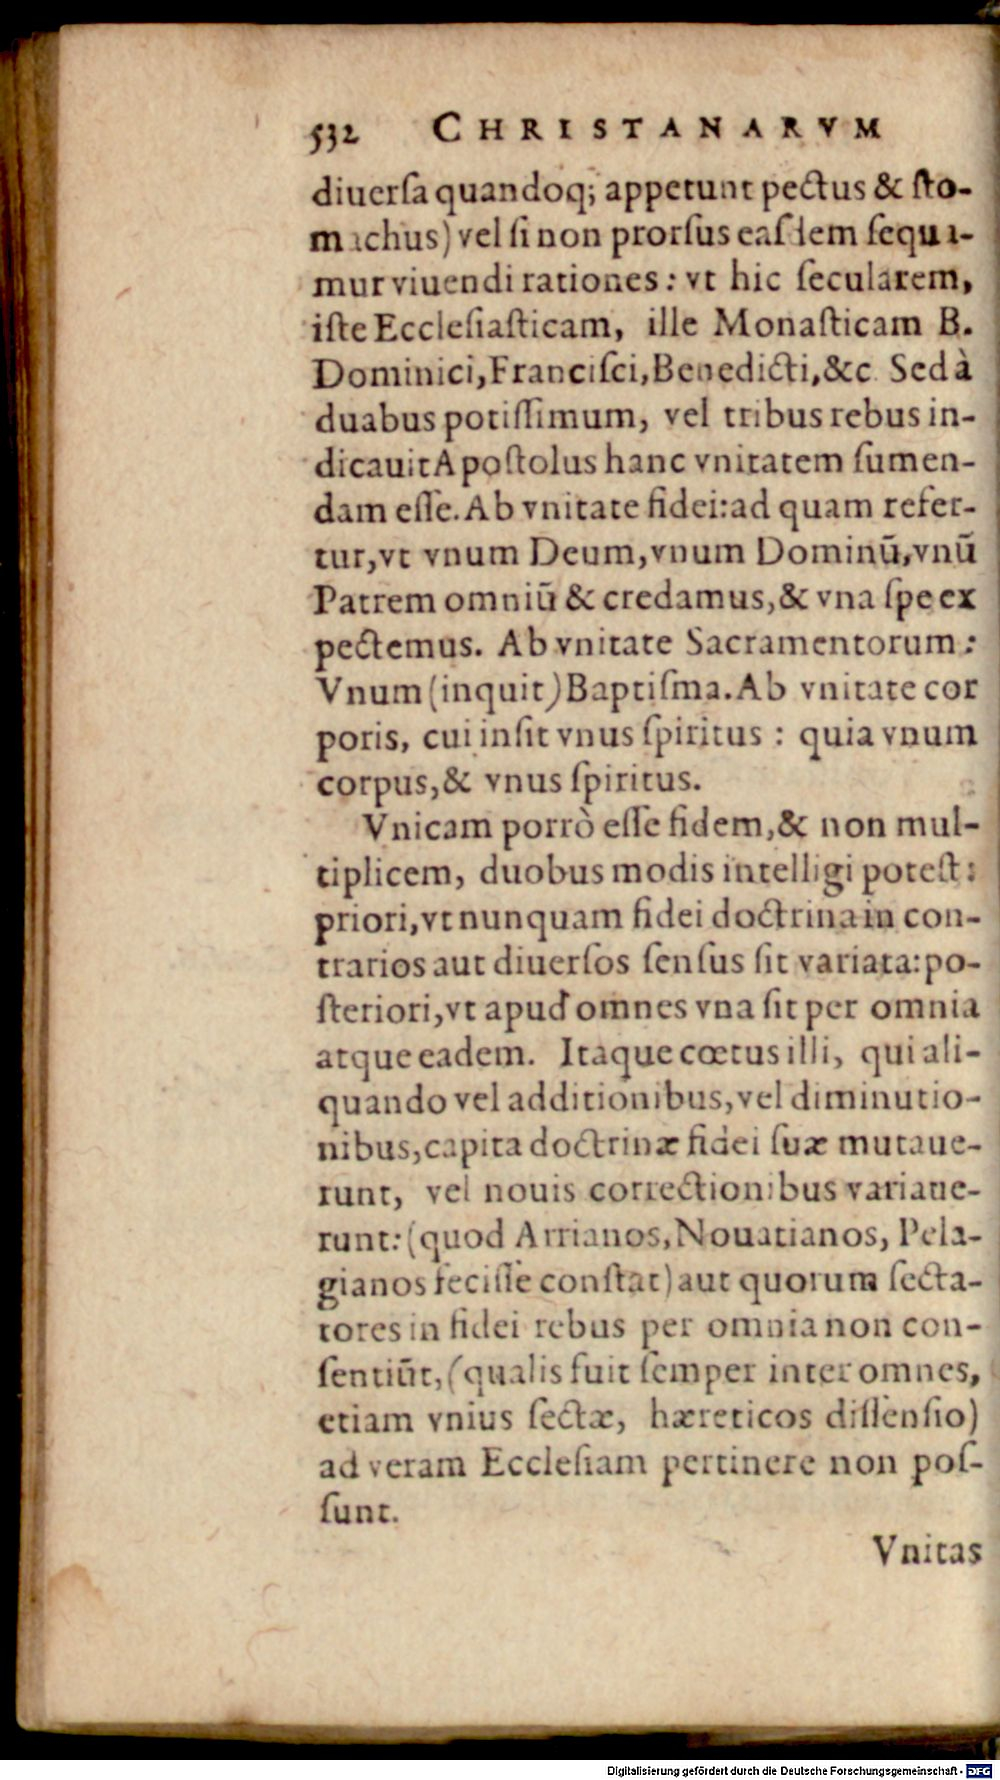 532 CHRISTANARVM
diuerſa quandoq; appetunt pectus & ſto-
machus) vel ſi non prorſus eaſdem ſequi-
mur viuendi rationes: vt hic ſecularem,
iſte Eccleſiaſticam, ille Monaſticam B.
Dominici, Franciſci, Benedicti, &c. Sed à
duabus potiſſimum, vel tribus rebus in-
dicauit Apoſtolus hanc vnitatem ſumen-
dam eſſe. Ab vnitate fidei: ad quam refer-
tur, vt vnum Deum, vnum Dominū, vnū
Patrem omniū & credamus, & vna ſpe ex
pectemus. Ab vnitate Sacramentorum:
Vnum (inquit) Baptiſma. Ab vnitate cor
poris, cui inſit vnus ſpiritus: quia vnum
corpus, & vnus ſpiritus.
Vnicam porrò eſſe fidem, & non mul-
tiplicem, duobus modis intelligi poteſt:
priori, vt nunquam fidei doctrina in con-
trarios aut diuerſos ſenſus ſit variata: po-
ſteriori, vt apud omnes vna ſit per omnia
atque eadem. Itaque cœtus illi, qui ali-
quando vel additionibus, vel diminutio-
nibus, capita doctrinæ fidei ſuæ mutaue-
runt, vel nouis correctionibus variaue-
runt: (quod Arrianos, Nouatianos, Pela-
gianos feciſſe conſtat) aut quorum ſecta-
tores in fidei rebus per omnia non con-
ſentiūt, (qualis fuit ſemper inter omnes,
etiam vnius ſectæ, hæreticos diſſenſio)
ad veram Eccleſiam pertinere non poſ-
ſunt.
Vnitas
Digitalisierung gefördert durch die Deutsche Forschungsgemeinschaft - DFG